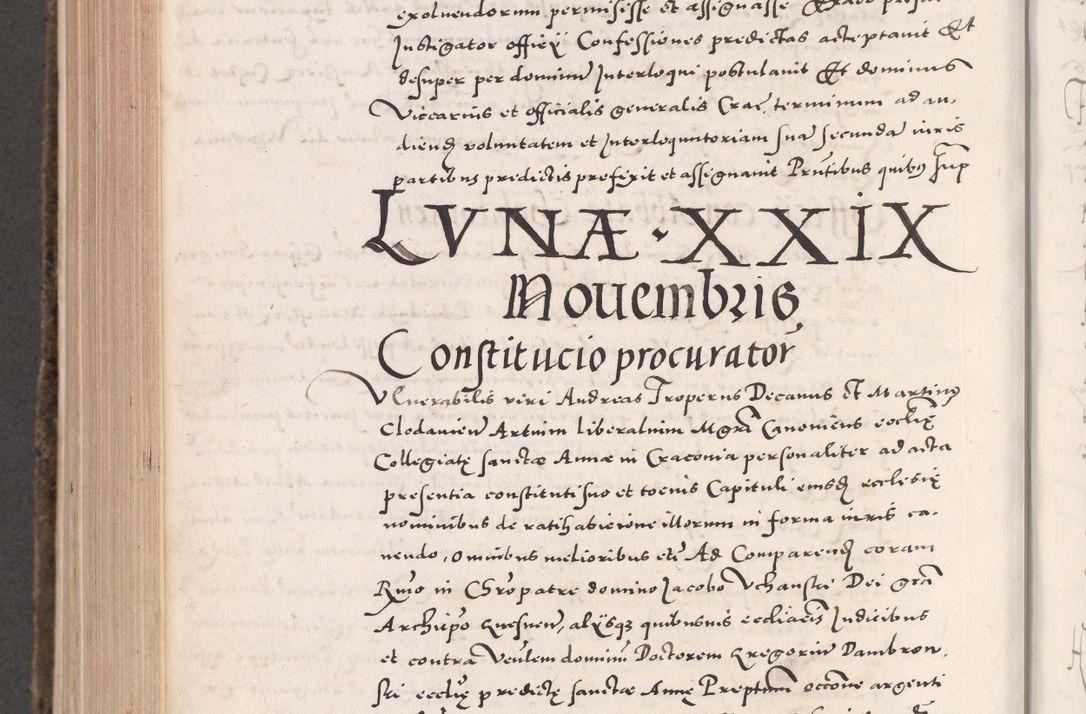 exoluendorum permisisse et assignasse
Instigator officij Confessiones predictas acceptauit Et
desuper per dominum Interloqui postulauit Et dominus
Viccarius et officialis generalis Crac, terminum ad au-
diend voluntatem et Interloqutoriam sua secunda iuris
partibus predictis prefixit et assignauit Pntibus quibus supra
LVNÆ · XXIX
Nouembris
Constitucio procurator
Venerabilis viri Andreas Troperus Decanus et Martinus
Clodauien Artium liberalium Mgra Canonicus ecclie
Collegiatę sanctæ Annæ in Craconia personaliter ad acta
presentia constituti suo et tocius Capituli eiusd ecclesię
nominibus de ratihabicione illorum in forma iuris ca-
uendo, omnibus melioribus etc Ad Comparend coram
Rmo in Chro patre domino Jacobo Vchanski Dei gra
Archiepo Gnesnen, alijsq quibusuis eccliacis Iudicibus
et contra Venlem dominum Doctorem Gregorium Dambrow,
ski ecclię predictę sanctæ Annę Preptum occone argenti